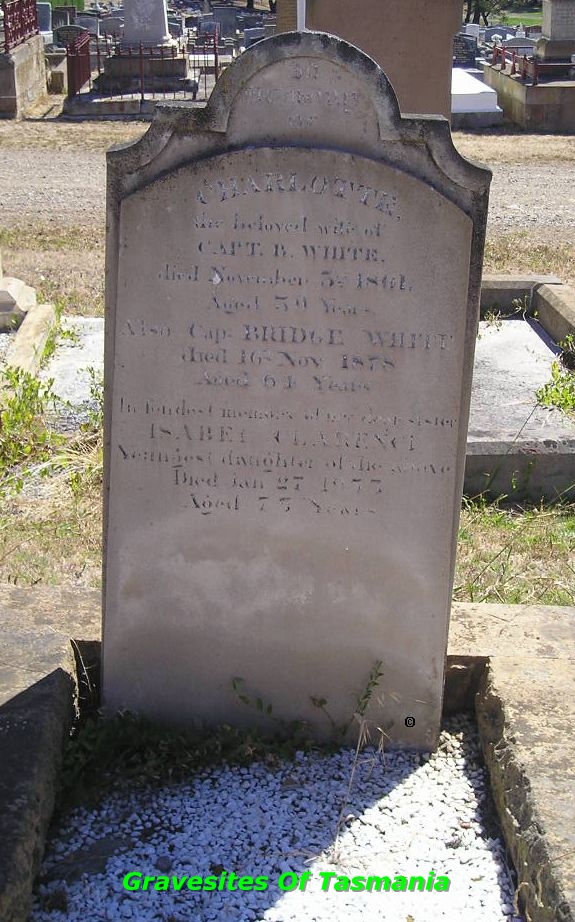 IN
MEMORY
OF
CHARLOTTE,
the beloved wife of
CAPT. B. WHITE,
died November 3rd 1861,
Aged 39 Years.
Also Cap. BRIDGE WHITE
died 16th Nov. 1878
Aged 64 Years
In fondest memory of our dear sister
ISABEL CLARENCE
Youngest daughter of the above
Died Jan 27
Aged 73 Years
©
Gravesites Of Tasmania